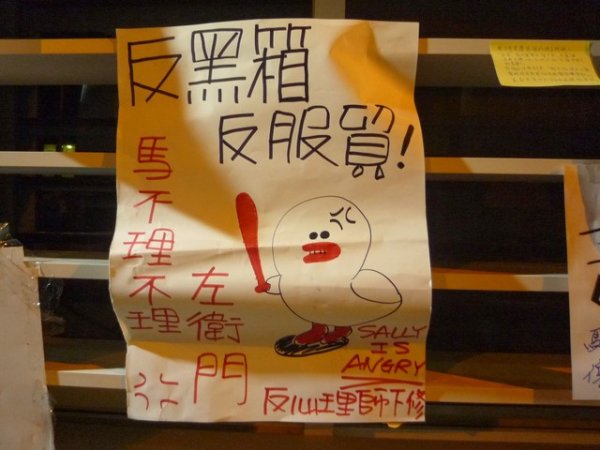 反黑箱
反服貿!
馬不理不理
左衛門
SALLY
IS
ANGRY
反心理師下修